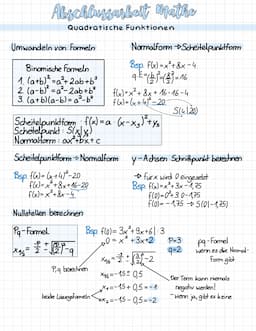 Abschlussarbeit Mathe
Quadratische Funktionen
Umwandeln von Formeln
Binomische Formeln
1. (a+b)² = a²+2ab+b²
2. (a-b)² = a²-2ab+b²
3. (a+b)(a-b) = a²-b²
Normalform → Scheitelpunktform
Bsp. f(x) = x²+8x-4
f(x) = x²+8x+16-16-4
f(x) = (x+4)²-20
S(4|20)
Scheitelpunktform: f(x) = a·(x-xₛ)²+yₛ
Scheitelpunkt: S(x|y)
Normalform: ax²+bx+c
Scheitelpunktform → Normalform
Bsp. f(x) = (x+4)²-20
f(x) = x²+8x+16-20
f(x) = x²+8x-4
y-Achsen Schnittpunkt berechnen
→ für x wird 0 eingesetzt
Bsp. f(x) = x²+3x-1,75
f(0) = 0²+3·0-1,75
f(0) = -1,75 → S(0|-1,75)
Nullstellen berechnen
Pq-Formel
Bsp. f(x) = 3x²+9x+6 |:3
0 = x²+3x+2
P=3
q=2
pq-Formel
wenn es die Normal-
Form gibt
P,q berechnen
= -1,5 ± 0,5
Der Term kann niemals
negativ werden!
wenn ja, gibt es keine
beide Lösungsformeln
x₁ = -1,5+0,5 = -1
x₂ = -1,5-0,5 = -2